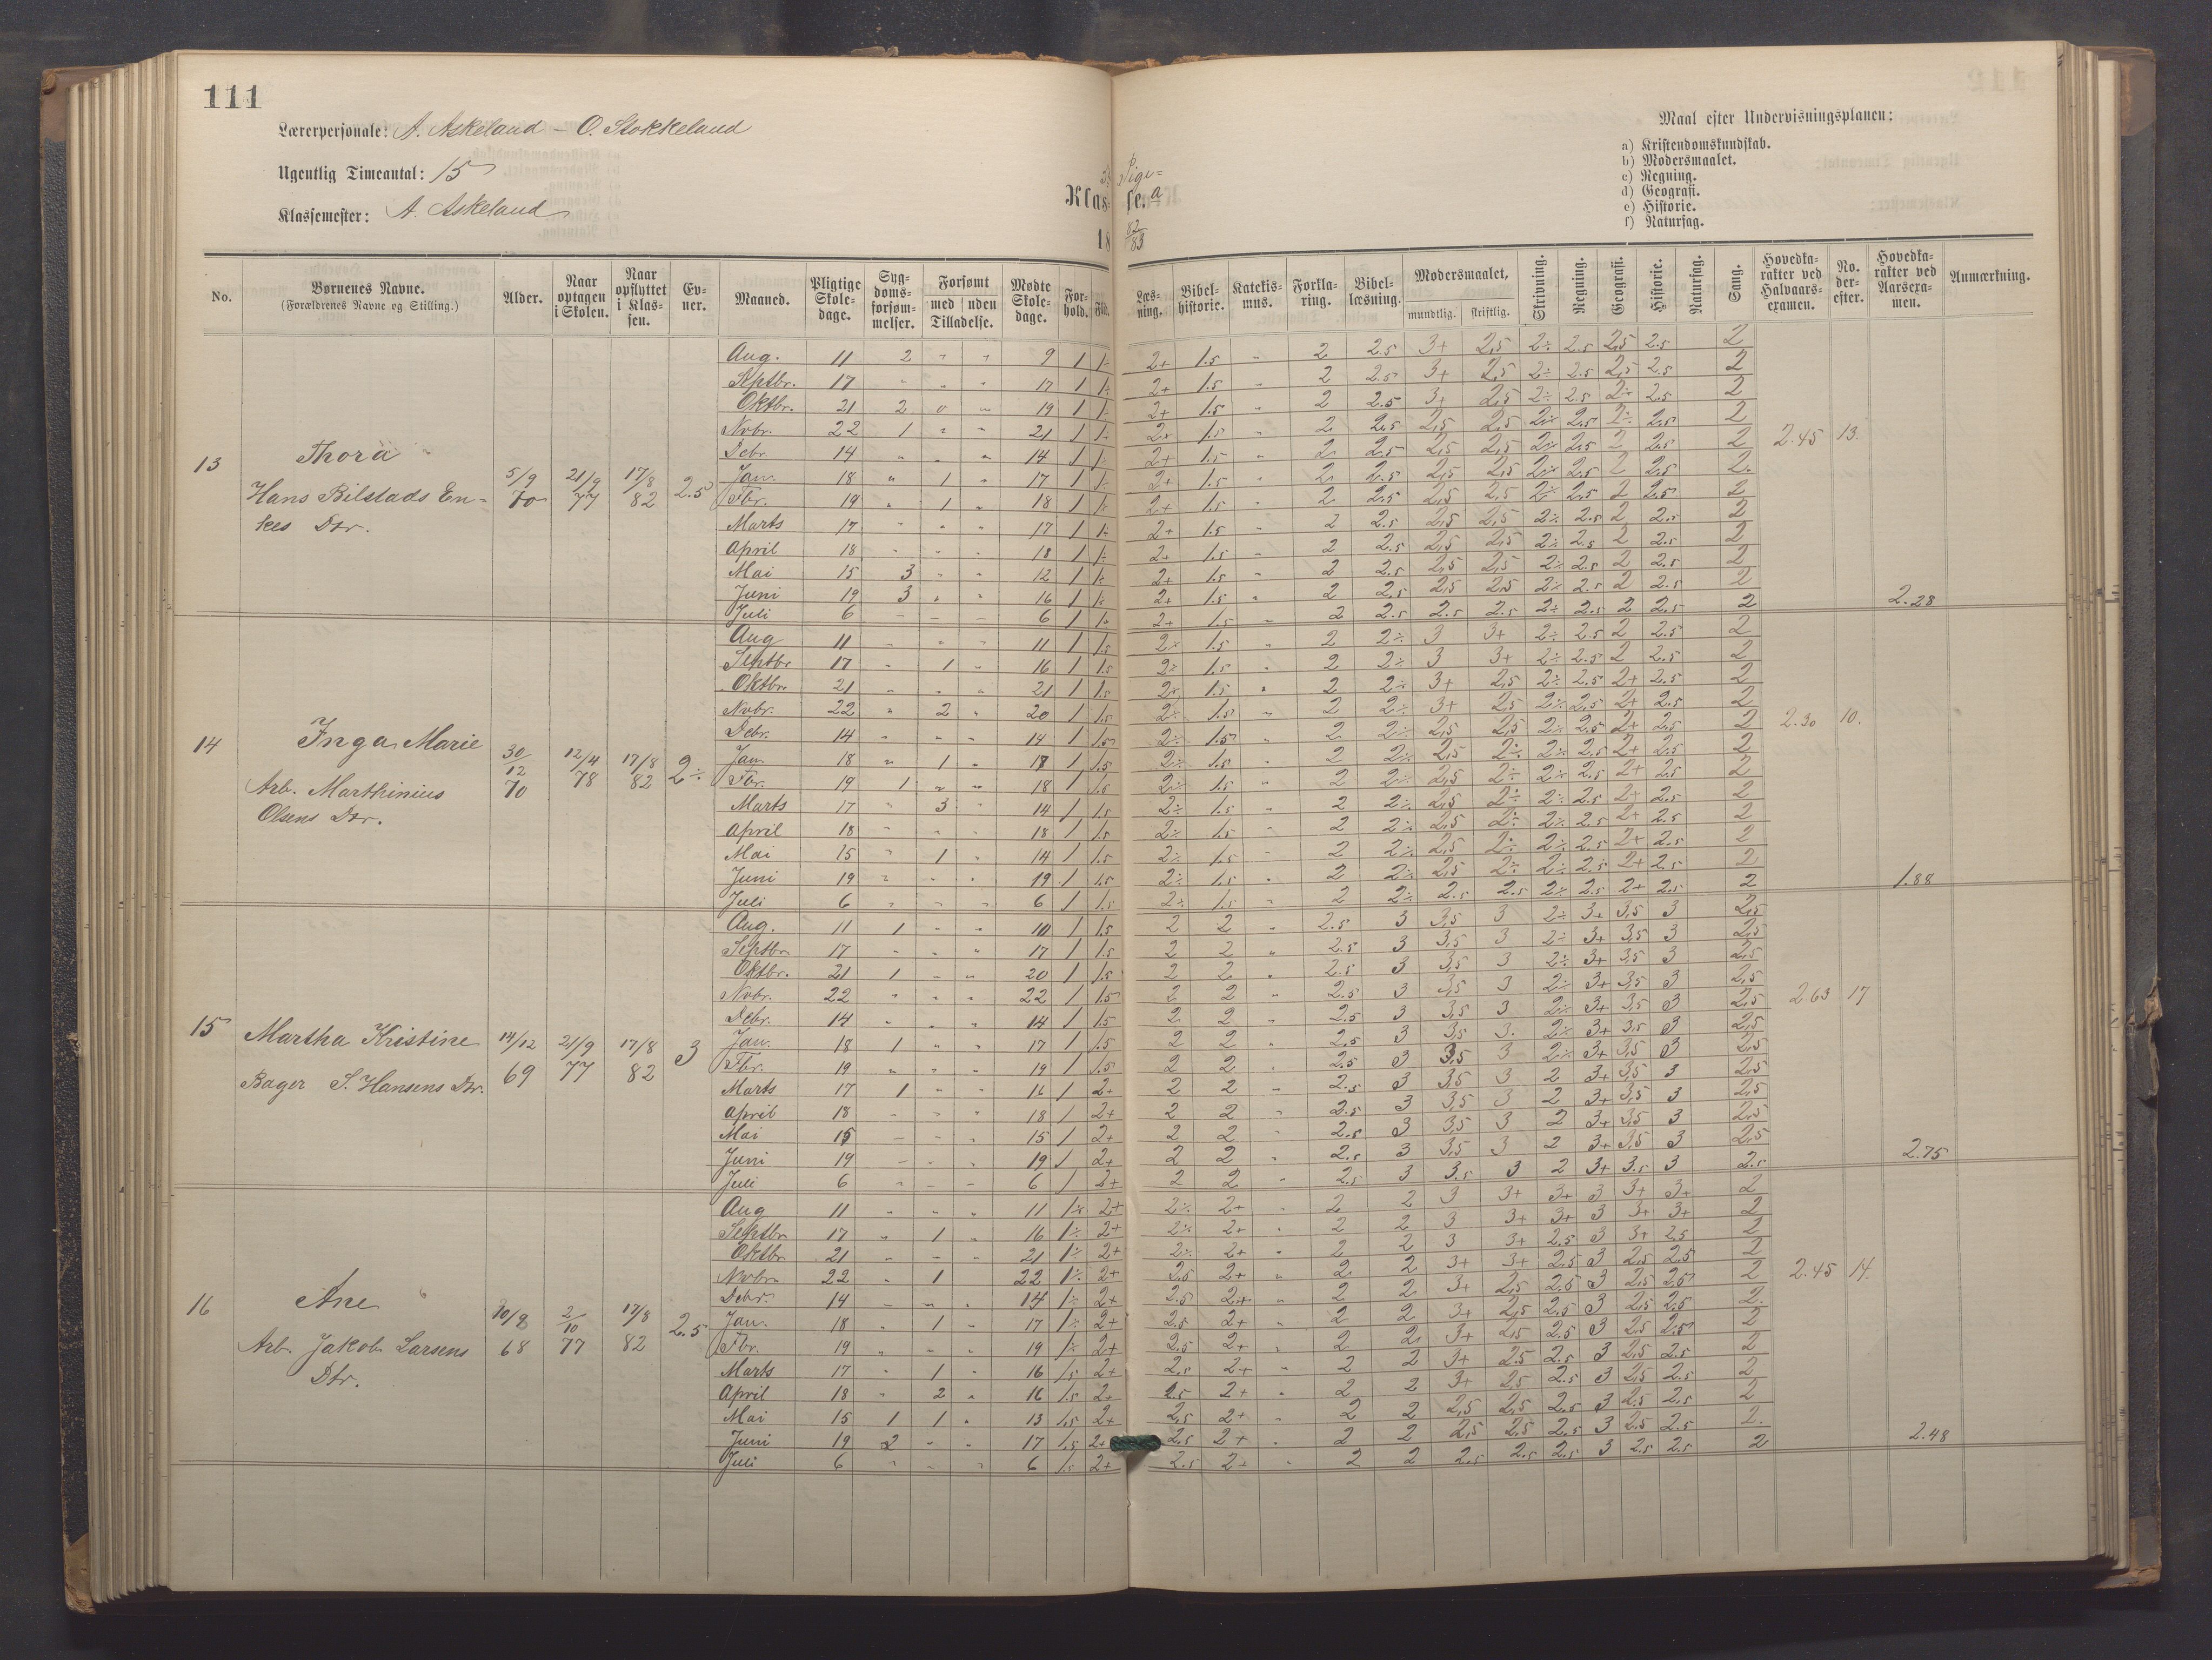 111
Lærerpersonale: A. Askeland - O. Stokkeland
Ugentlig Timeantal: 15
Klassemester: A. Askeland
Pige-
Klasse. a
18 82/83
Maal efter Undervisningsplanen:
a) Kristendomskundskab.
b) Modersmaalet.
c) Regning.
d) Geografi.
e) Historie.
f) Naturfag.
No. Børnenes Navne. (Forældrenes Navne og Stilling.) Alder. Naar optagen i Skolen. Naar opflyttet i Klassen. Evner. Maaned. Pligtige Skoledage. Sygdomsforsømmelser. Forsømt med uden Tilladelse. Mødte Skoledage. Forhold. Flid. Læsning. Bibelhistorie. Katekismus. Forklaring. Bibellæsning. Modersmaalet, mundtlig. skriftlig. Skrivning. Regning. Geografi. Historie. Naturfag. Sang. Hovedkarakter ved Halvaarsexamen. No. derefter. Hovedkarakter ved Aarsexamen. Anmærkning.
13 Thora
Hans Bilstads Enkes Dtr.
5/9 70 21/9 77 17/8 82 2.5
Aug. 11 2 " " 9 1 1÷ 2+ 1.5 " 2 2.5 3+ 2,5 2÷ 2.5 2,5 2.5 2
Septbr. 17 " " " 17 1 1÷ 2+ 1.5 " 2 2.5 3+ 2,5 2÷ 2.5 2,5 2.5 2
Oktbr. 21 2 " " 19 1 1÷ 2+ 1.5 " 2 2.5 3+ 2,5 2÷ 2.5 2÷ 2.5 2
Novbr. 22 1 " " 21 1 1÷ 2+ 1.5 " 2 2.5 2,5 2,5 2÷ 2.5 2÷ 2.5 2
Debr. 14 " " " 14 1 1÷ 2+ 1.5 " 2 2.5 2,5 2,5 2÷ 2.5 2 2.5 2 2.45 13.
Jan. 18 " 1 " 17 1 1÷ 2+ 1.5 " 2 2.5 2,5 2,5 2÷ 2.5 2 2.5 2.
Fbr. 19 " 1 " 18 1 1÷ 2+ 1.5 " 2 2.5 2,5 2,5 2÷ 2.5 2 2.5 2
Marts 17 " " " 17 1 1÷ 2+ 1.5 " 2 2.5 2,5 2,5 2÷ 2.5 2 2.5 2
April 18 " " " 18 1 1÷ 2+ 1.5 " 2 2.5 2,5 2,5 2÷ 2.5 2 2.5 2
Mai 15 3 " " 12 1 1÷ 2+ 1.5 " 2 2.5 2,5 2,5 2÷ 2.5 2 2.5 2
Juni 19 3 " " 16 1 1÷ 2+ 1.5 " 2 2.5 2,5 2,5 2÷ 2.5 2 2.5 2
Juli 6 " " " 6 1 1÷ 2+ 1.5 " 2 2.5 2.5 2.5 2÷ 2.5 2 2.5 2 2.28
14 Inga Marie
Arb. Marthinius
Olsens Dtr.
30/12 70 12/4 78 17/8 82 2÷
Aug 11 " " " 11 1 1.5 2÷ 1.5 " 2 2÷ 3 3+ 2÷ 2.5 2 2.5 2
Septbr 17 " 1 " 16 1 1.5 2÷ 1.5 " 2 2÷ 3 3+ 2÷ 2.5 2 2.5 2
Oktbr. 21 " " " 21 1 1.5 2÷ 1.5 " 2 2÷ 3+ 2,5 2÷ 2.5 2+ 2.5 2
Novbr. 22 " 2 " 20 1 1.5 2÷ 1.5 " 2 2÷ 3+ 2,5 2÷ 2,5 2+ 2.5 2
Debr. 14 " " " 14 1 1.5 2÷ 1.5 " 2 2÷ 2,5 2,5 2÷ 2.5 2+ 2.5 2 2.30 10.
Jan. 18 " 1 " 17 1 1.5 2÷ 1.5 " 2 2÷ 2,5 2÷ 2÷ 2.5 2+ 2.5 2
Fbr. 19 1 " " 18 1 1.5 2÷ 1.5 " 2 2÷ 2,5 2÷ 2÷ 2.5 2+ 2.5 2
Marts 17 " 3 " 14 1 1.5 2÷ 1.5 " 2 2÷ 2,5 2÷ 2÷ 2.5 2+ 2.5 2
April 18 " " " 18 1 1.5 2÷ 1.5 " 2 2÷ 2,5 2÷ 2÷ 2.5 2+ 2.5 2
Mai 15 " 1 " 14 1 1.5 2÷ 1.5 " 2 2÷ 2,5 2÷ 2÷ 2.5 2+ 2.5 2
Juni 19 " " " 19 1 1.5 2÷ 1.5 " 2 2÷ 2,5 2÷ 2÷ 2.5 2+ 2.5 2
Juli 6 " " " 6 1 1.5 2÷ 1.5 " 2 2÷ 2.5 2.5 2÷ 2.5 2+ 2.5 2 1.88
15 Martha Kristine
Bager S. Hansens Dtr.
14/12 69 21/9 77 17/8 82 3
Aug. 11 1 " " 10 1 1.5 2 2 " 2.5 3 3,5 3 2÷ 3+ 3,5 3 2,5
Septbr 17 " " " 17 1 1.5 2 2 " 2.5 3 3,5 3 2÷ 3+ 3,5 3 2,5
Oktbr. 21 1 " " 20 1 1.5 2 2 " 2.5 3 3,5 3 2÷ 3+ 3,5 3 2,5
Novbr. 22 " " " 22 1 1.5 2 2 " 2.5 3 3,5 3 2÷ 3+ 3,5 3 2,5
Debr. 14 " " " 14 1 1.5 2 2 " 2.5 3 3,5 3 2÷ 3+ 3,5 3 2,5 2.63 17
Jan. 18 1 " " 17 1 1.5 2 2 " 2.5 3 3,5 3. 2÷ 3+ 3,5 3 2,5
Fbr. 19 " " " 19 1 1.5 2 2 " 2.5 3 3,5 3 2÷ 3+ 3,5 3 2,5
Marts 17 1 " " 16 1 2+ 2 2 " 2.5 3 3,5 3 2 3+ 3,5 3 2,5
April 18 " " " 18 1 2+ 2 2 " 2.5 3 3,5 3 2 3+ 3,5 3 2,5
Mai 15 " " " 15 1 2+ 2 2 " 2.5 3 3,5 3 2 3+ 3,5 3 2,5
Juni 19 " " " 19 1 2+ 2 2 " 2.5 3 3,5 3 2 3+ 3,5 3 2,5
Juli 6 " " " 6 1 2+ 2 2 " 2.5 3 3.5 3 2 3+ 3.5 3 2.5 2.75
16 Ane
Arb. Jakob Larsens
Dtr.
68 2/10 77 17/8 82 2.5
Aug 11 " " " 11 1÷ 2+ 2÷ 2+ " 2 2 3 3+ 3+ 3 3+ 3+ 2
Septbr 17 " 1 " 16 1÷ 2+ 2÷ 2+ " 2 2 3 3+ 3+ 3 3+ 3+ 2
Oktbr 21 " " " 21 1÷ 2+ 2÷ 2+ " 2 2 3 3+ 2.5 3 3+ 2.5 2
Novbr. 22 " 1 22 1÷ 2+ 2.5 2+ " 2 2 3+ 3+ 2.5 3 2,5 2.5 2
Debr. 14 " " " 14 1÷ 2+ 2.5 2+ " 2 2 3+ 2,5 2.5 3 2,5 2.5 2 2.45 14.
Jan. 18 " 1 " 17 1÷ 2+ 2.5 2+ " 2 2 3+ 2,5 2.5 3 2,5 2.5 2.
Fbr. 19 " " " 19 1÷ 2+ 2.5 2+ " 2 2 3+ 2,5 2.5 3 2,5 2.5 2
Marts 17 " 1 " 16 1.5 2+ 2.5 2+ " 2 2 3+ 2.5 2.5 3 2,5 2.5 2
April 18 " 2 " 16 1.5 2+ 2.5 2+ " 2 2 3+ 2,5 2.5 3 2,5 2.5 2
Mai 15 1 1 " 13 1.5 2+ 2.5 2+ " 2 2 2,5 2,5 2.5 3 2.5 2.5 2
Juni 19 2 " " 17 1.5 2+ 2.5 2+ " 2 2 2,5 2,5 2.5 3 2.5 2.5 2.
Juli 6 " " " 6 1.5 2+ 2.5 2+ " 2 2 2.5 2.5 2.5 3 2.5 2.5 2 2.48